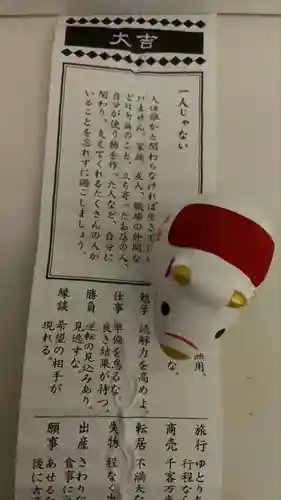 大吉
一人じゃない
人は誰かと関わらなければ生きて
いません。家族、友人、職場の仲間な
どはもちろんのこと、立ち寄ったお店の人、
自分が使う物を作った人など、自分に
関わり、支えてくれるたくさんの人が
いることを忘れずに過ごしましょう。
勉学 読解力を高めよ。
仕事 準備を怠るな。
良き結果が待つ。
勝負 逆転の見込みあり。
見逃すな。
縁談 希望の相手が
現れる。
旅行 ゆとり
行程なら
商売 千客万
転居 不満
失物 程な
出産 さわりな
食事に
願事 あせるな
後に